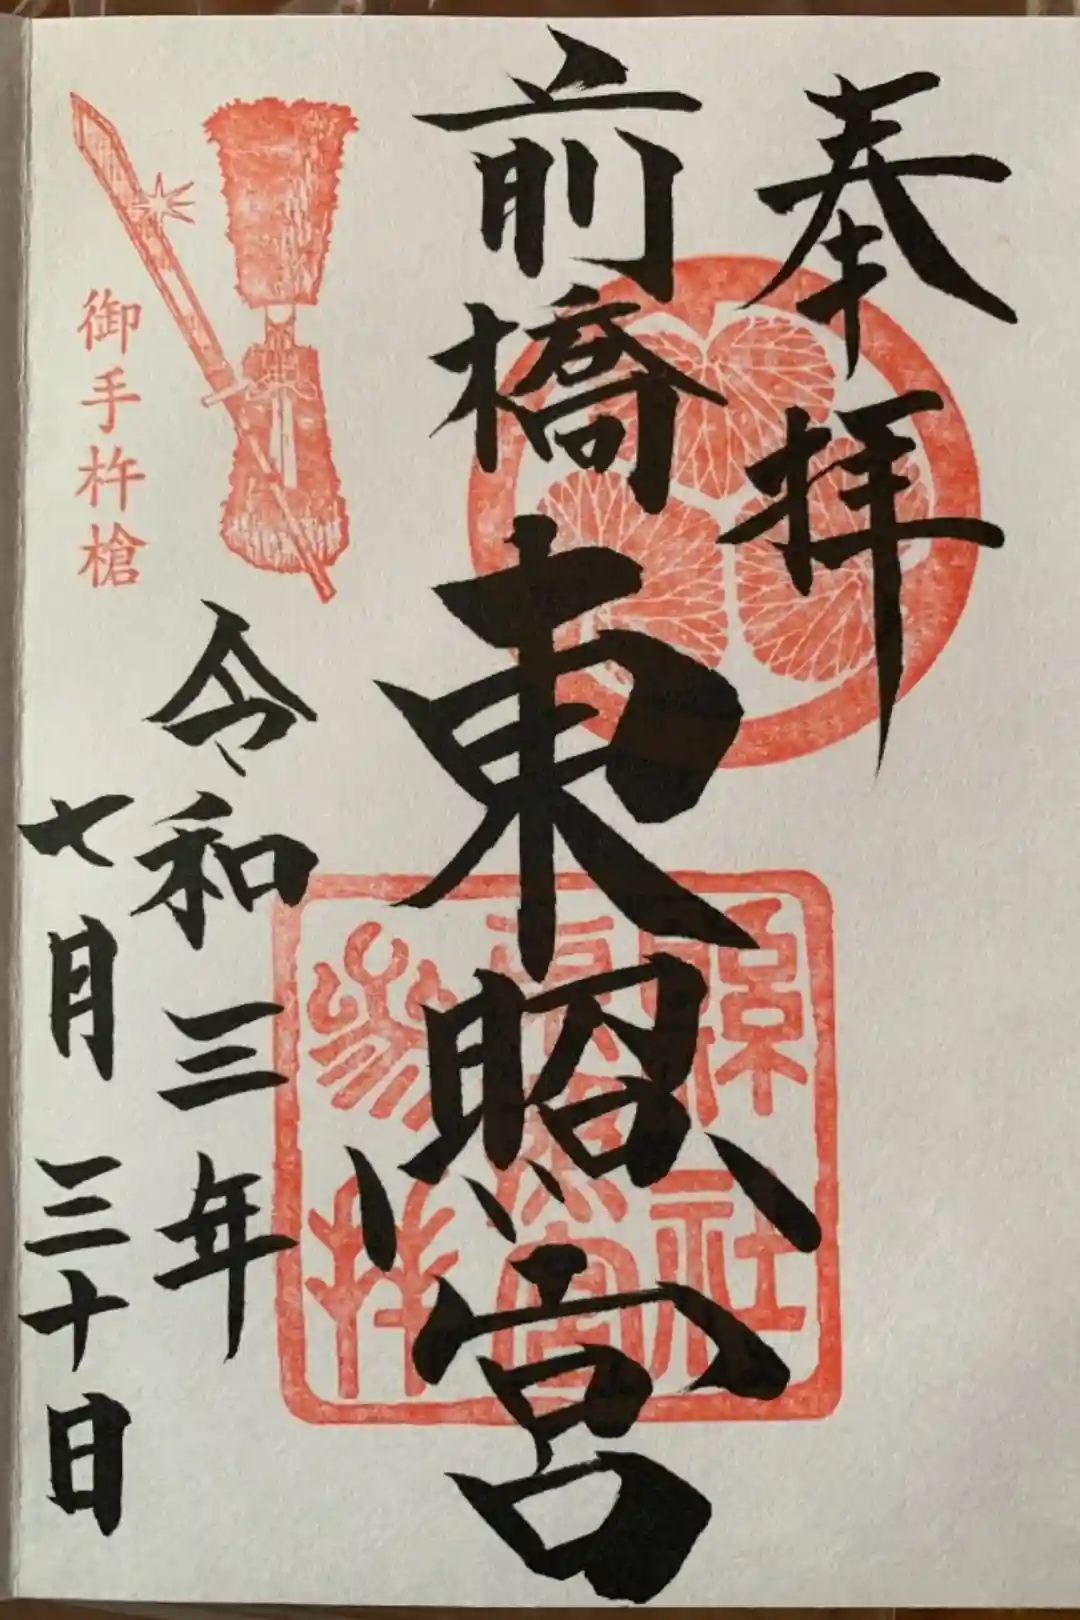 奉拝
前橋東照宮
御手杵槍
令和三年
七月三十日